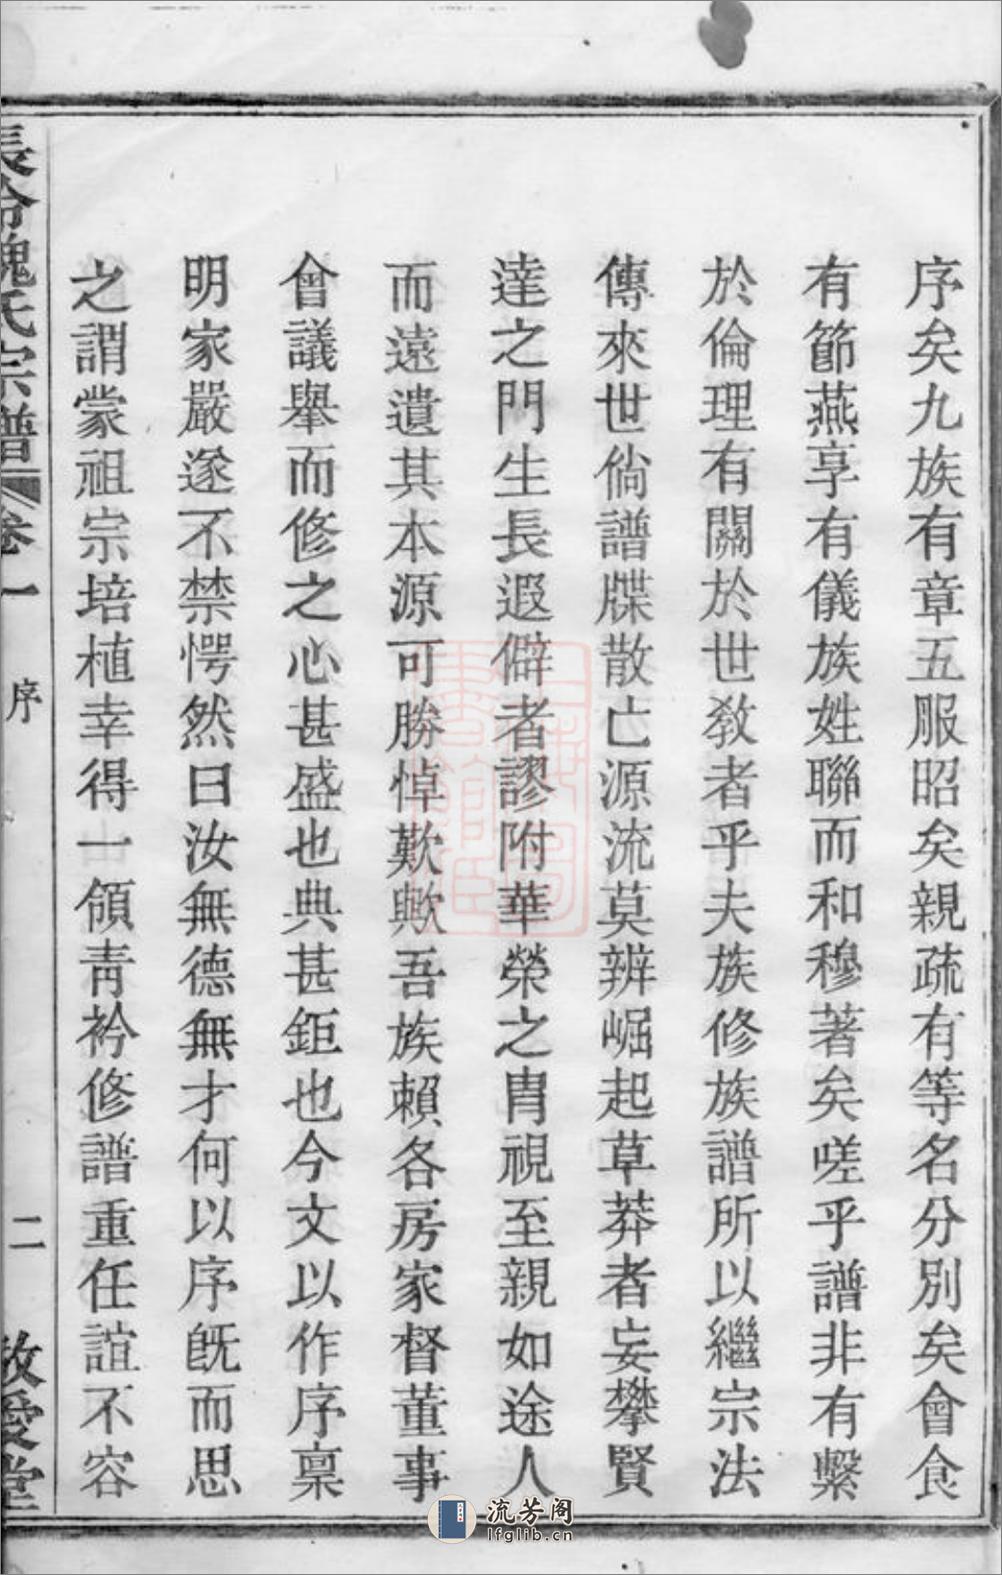 序矣九族有章五服昭矣親疏有等名分別矣會食
有節燕享有儀族姓聯而和穆著矣嗟乎譜非有繫
於倫理有關於世教者乎夫族修族譜所以繼宗法
傳來世倘譜牒散亡源流莫辨崛起草莽者妄攀賢
達之門生長遐僻者謬附華榮之胄視至親如途人
而遠遺其本源可勝悼歎歟吾族賴各房家督董事
會議舉而修之心甚盛也典甚鉅也今文以作序稟
明家嚴遂不禁愕然曰汝無德無才何以序旣而思
之謂蒙祖宗培植幸得一領青衿修譜重任誼不容
長令魏氏宗譜 卷一 序 二 敬愛堂
流芳阁
lfglib.cn